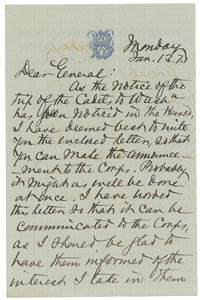 Monday
Jan. 12.
Dear General:
As the Notice of the
trip of the Cadets to Wash
has been Noticed in the Herald,
I have deemed best to write
you the enclosed letter, so that
you can make the announce-
ment to the Corps. Probably
it might as well be done
at once. I have worded
this letter so that it can be
communicated to the Corps,
as I should be glad to
have them informed of the
interest I take in them